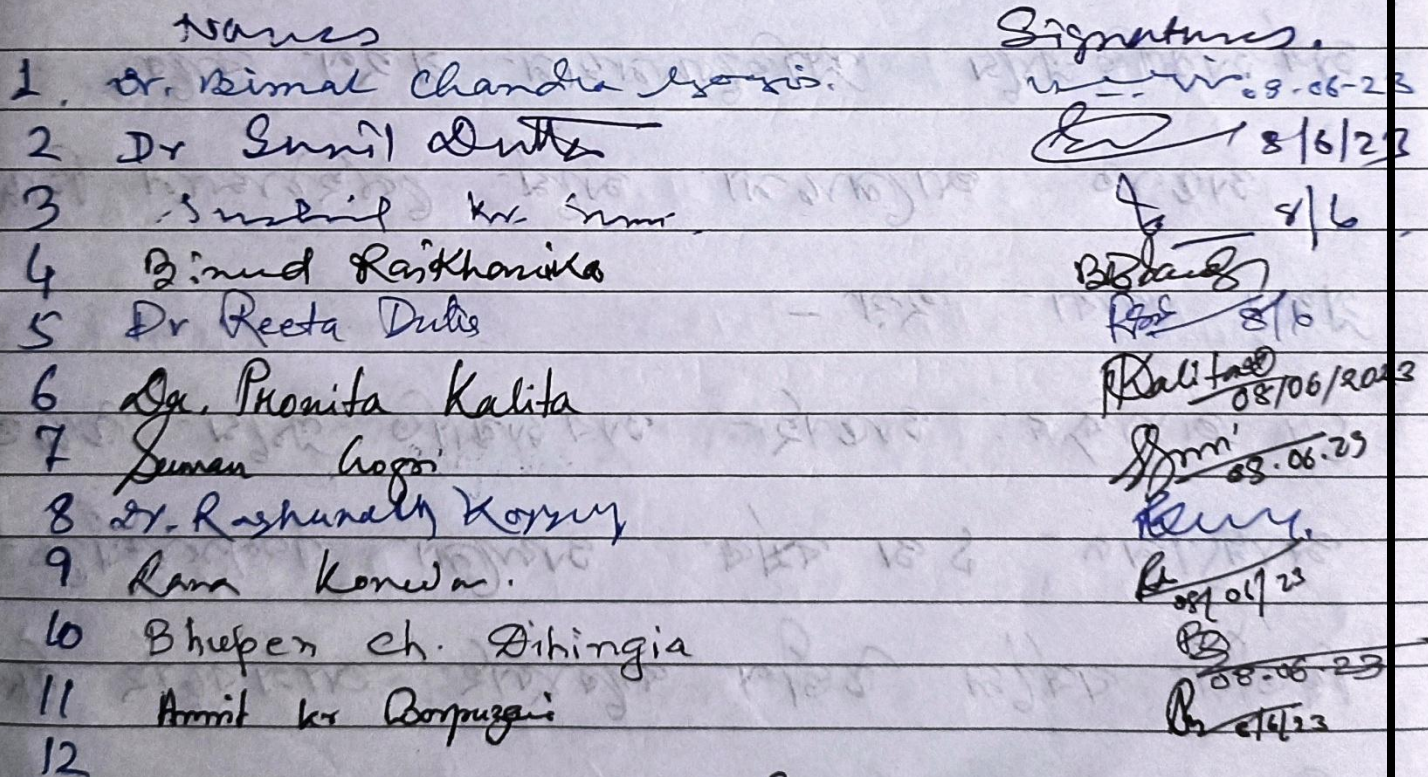 Names Signatures.
1. Dr. Bimal Chandra Gogoi. 08-06-23
2 Dr Sunil Dutta 8/6/23
3 Kr. 8/6
4 Binud Rajkhowa
5 Dr Reeta Dutta 8/6
6 Dr. Pronita Kalita Kalita 08/06/2023
7 Suman Gogoi 08.06.23
8 Dr. Raghunath
9 Rana Konwar. 08/06/23
10 Bhupen ch. Dihingia 08.06.23
11 Amrit kr Borpuzari 8/6/23
12